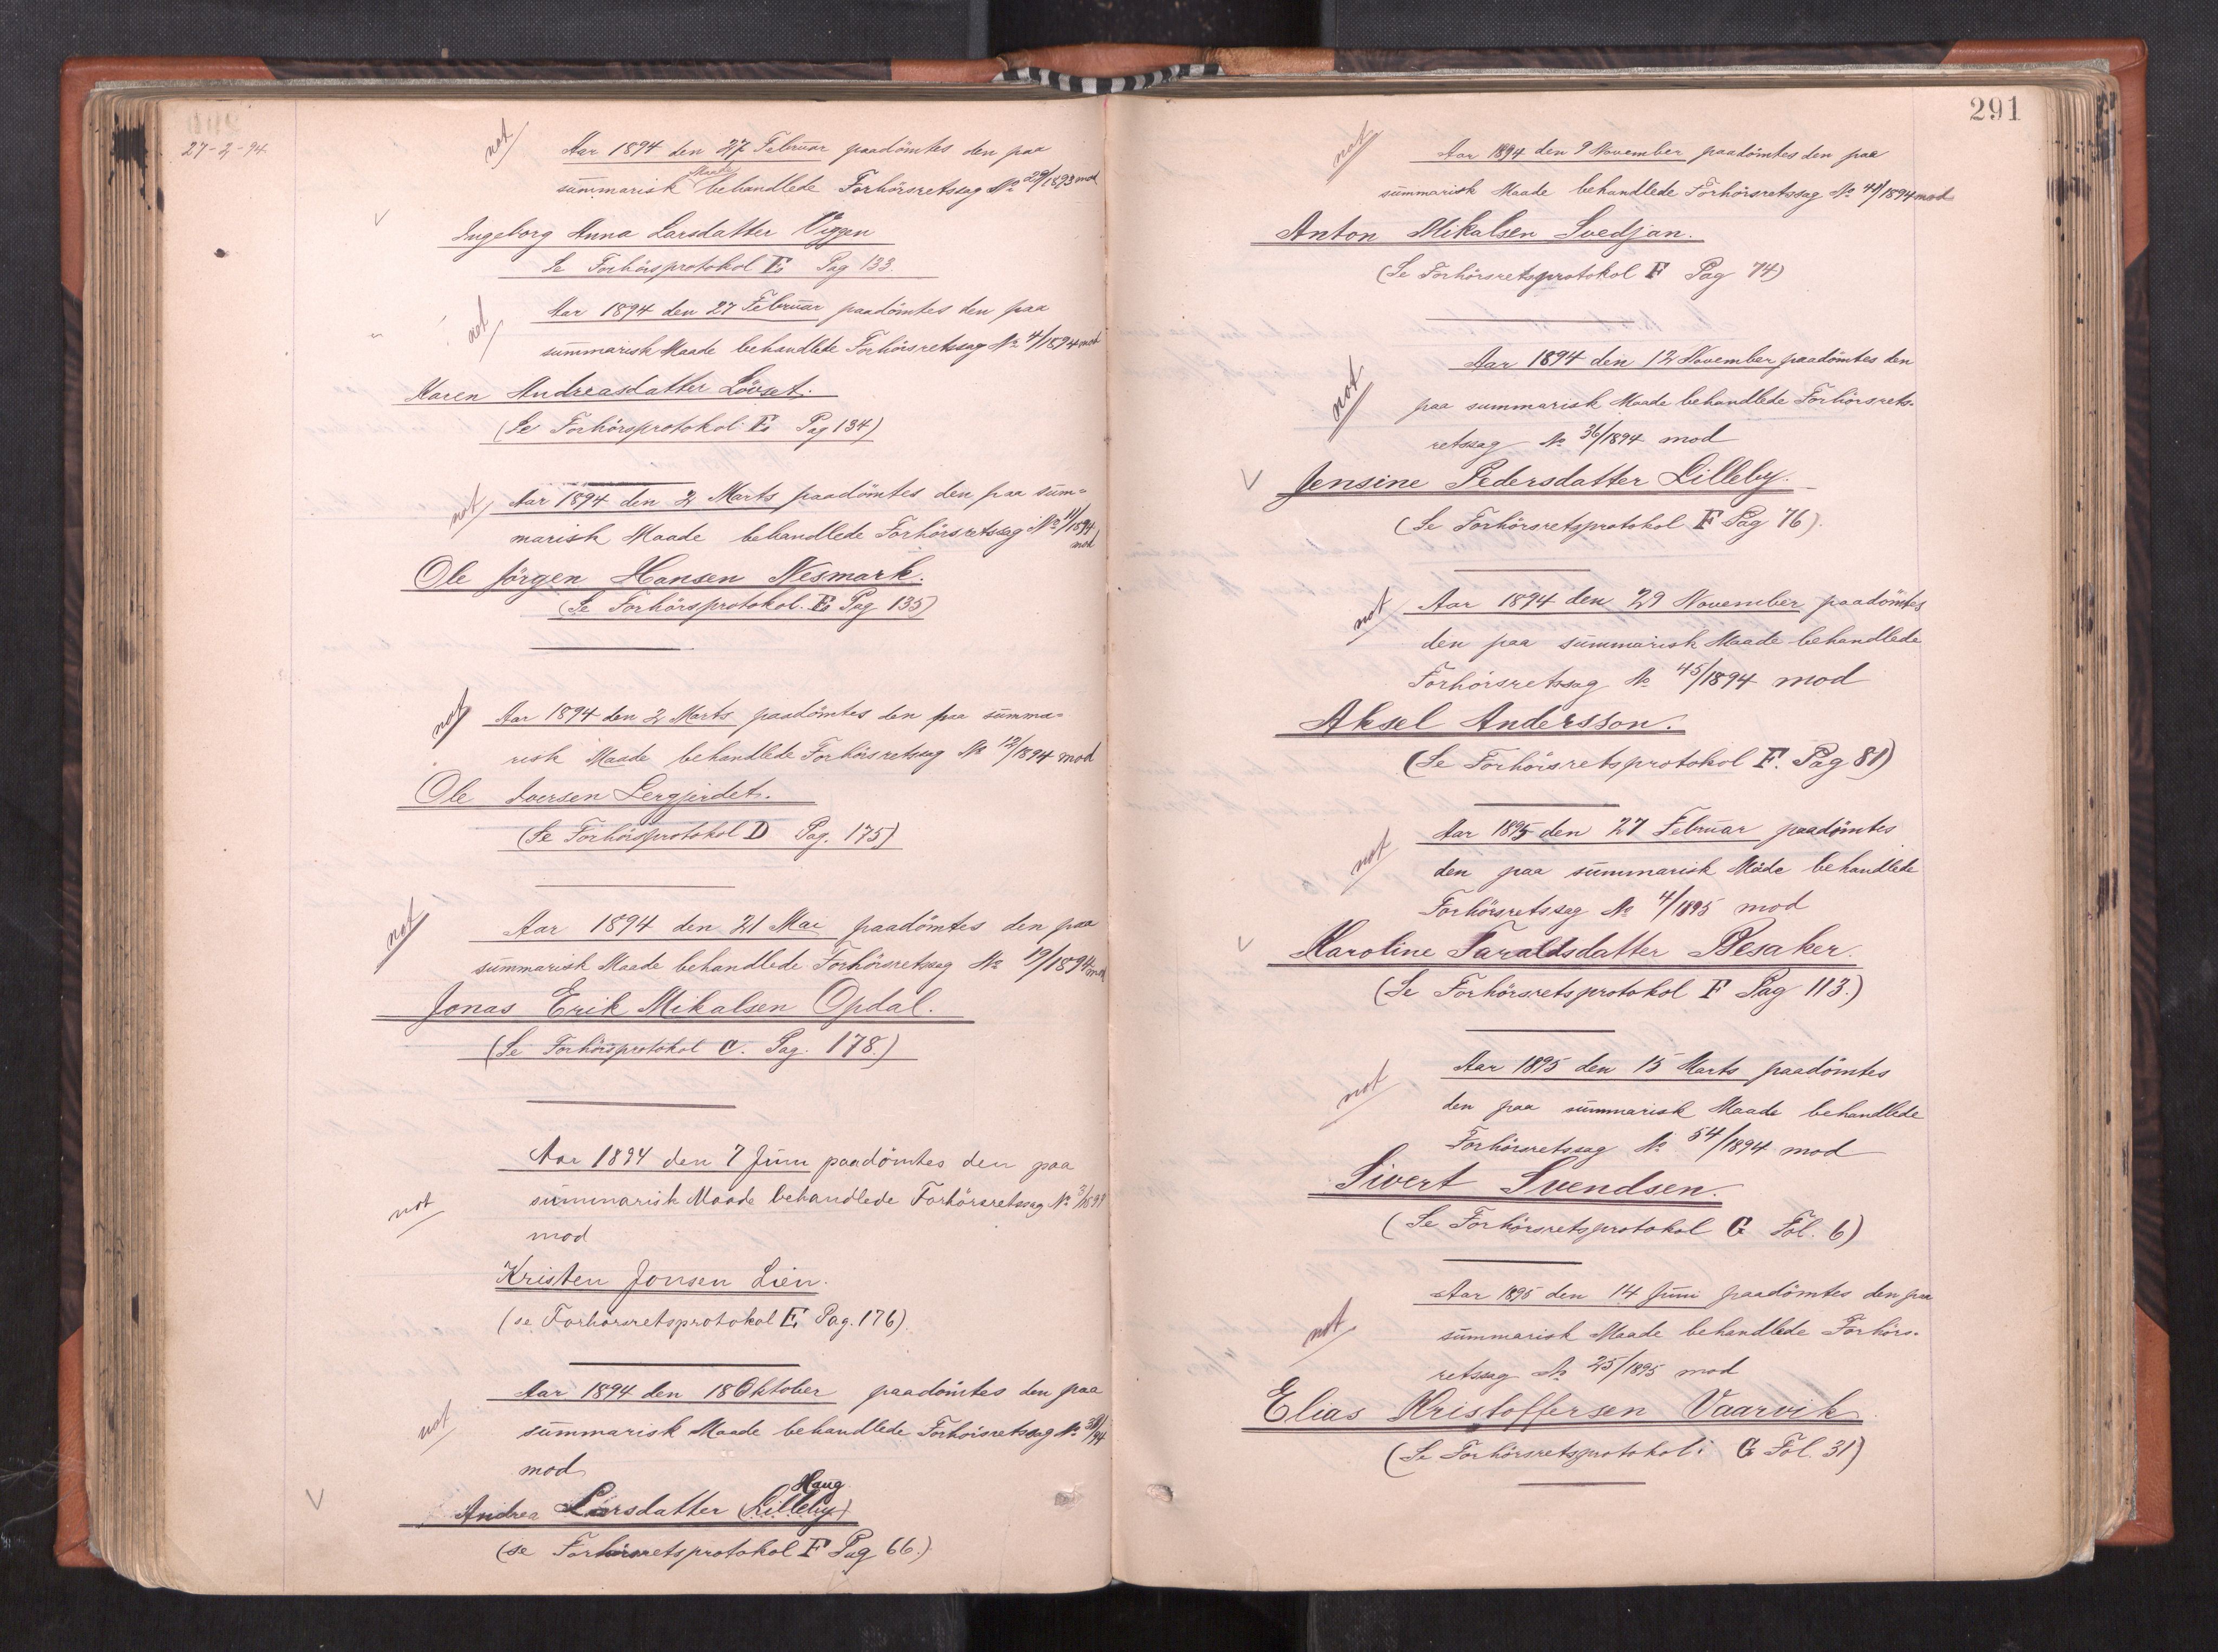 27-2-94
not
Aar 1894 den 27 Februar paadömtes den paa
Maade
summarisk behandlede Forhörsretssag No 29/1893 mod
Ingeborg Anna Larsdatter Viggen
Se Forhörsprotokol E Pag 133.
not
Aar 1894 den 27 Februar paadömtes den paa
summarisk Maade behandlede Forhörsretssag No 4/1894 mod
Karen Andreasdatter Lövset.
(Se Forhörsprotokol E Pag 134)
not
Aar 1894 den 2 Marts paadömtes den paa sum=
marisk Maade behandlede Forhörsretssag No 11/1894
mod
Ole Jörgen Hansen Nesmark.
(Se Forhörsprotokol. E Pag 135)
not
Aar 1894 den 2 Marts paadömtes den paa summa=
risk Maade behandlede Forhörsretssag No 12/1894 mod
Ole Iversen Lergjerdet.
(Se Forhörsprotokol D Pag. 175)
not
Aar 1894 den 21 Mai paadömtes den paa
summarisk Maade behandlede Forhörsretssag No 19/1894 mod
Jonas Erik Mikalsen Opdal.
(Se Forhörsprotokol C. Pag. 178.)
Aar 1894 den 7 Juni paadömtes den paa
not
summarisk Maade behandlede Forhörsretssag No
mod
Kristen Jonsen Lien.
(se Forhörsretsprotokol E Pag. 176).
Aar 1894 den 18 Oktober paadömtes den paa
not
summarisk Maade behandlede Forhörsretssag No 38/94
mod
Haug
Andrea Larsdatter (Lilleby)
(se Forhörsretsprotokol F Pag 66.)
291
not
Aar 1894 den 9 November paadömtes den paa
summarisk Maade behandlede Forhörsretssag No 41/1894 mod
Anton Mikalsen Svedjan.
(Se Forhörsretsprotokol F Pag 74)
not
Aar 1894 den 12 November paadömtes den
paa summarisk Maade behandlede Forhörsrets-
retssag No 36/1894 mod
Jensine Pedersdatter Lilleby.
(Se Forhörsretsprotokol F Pag 76).
not
Aar 1894 den 29 November paadömtes
den paa summarisk Maade behandlede
Forhörsretssag No 45/1894 mod
Aksel Andersson.
(Se Forhörsretsprotokol F. Pag 81)
not
Aar 1895 den 27 Februar paadömtes
den paa summarisk Måde behandlede
Forhörsretssag No 4/1895 mod
Karoline Taraldsdatter Nesaker.
(Se Forhörsretsprotokol F Pag 113.)
not
Aar 1895 den 15 Marts paadömtes
den paa summarisk Maade behandlede
Forhörsretssag No 54/1894 mod
Sivert Svendsen.
(Se Forhörsretsprotokol G Fol. 6)
Aar 1895 den 14 Juni paadömtes den paa
not
summarisk Maade behandlede Forhörs-
retssag No 25/1895 mod
Elias Kristoffersen Vaarvik
(Se Forhörsretsprotokol: G Fol. 31)